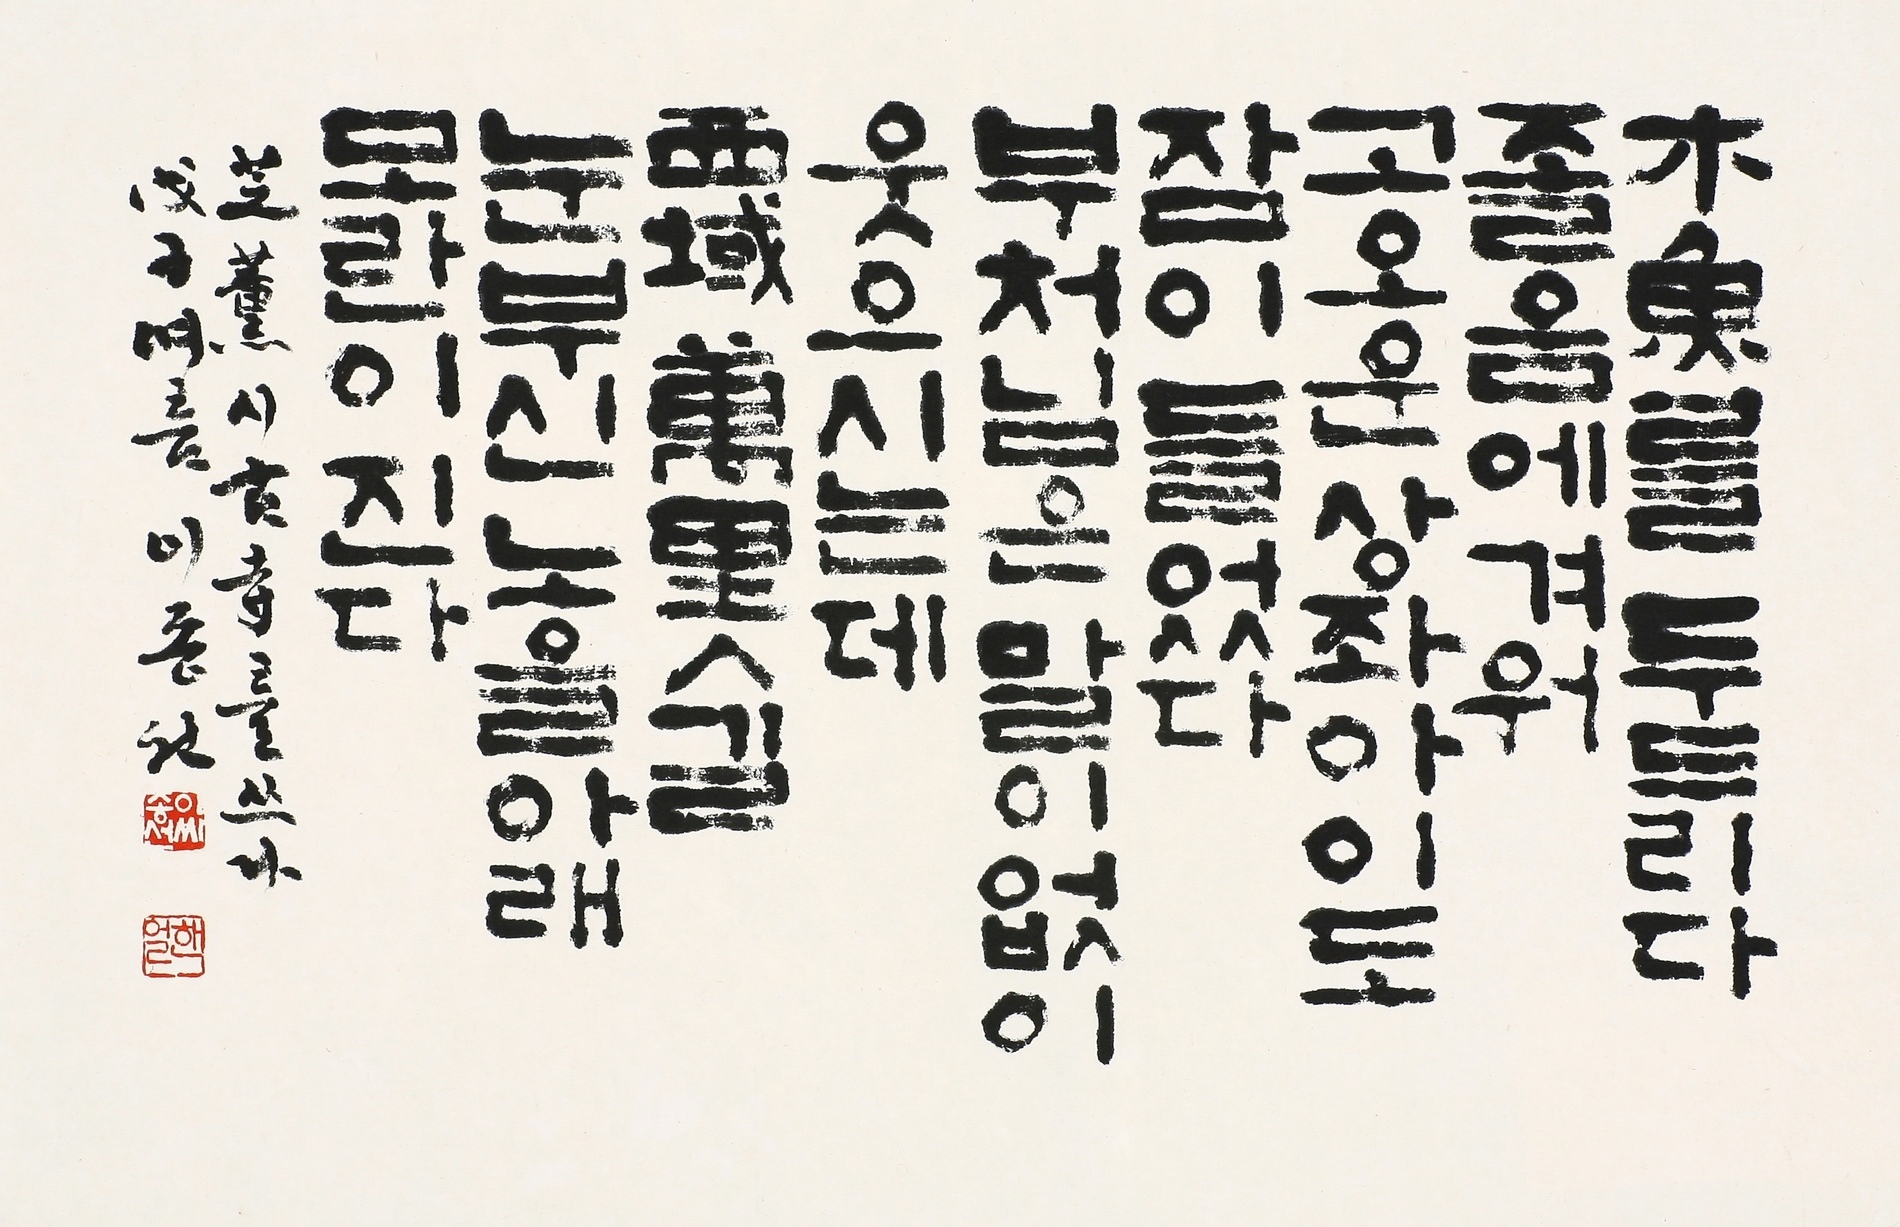 木魚를 두드리다
졸음에 겨워
고오운 상좌아이도
잠이 들었다
부처님은 말이 없이
웃으시는데
西域 萬里ㅅ길
눈부신 노을 아래
모란이 진다
芝薰 시 古寺를 쓰다
戊子 이종선